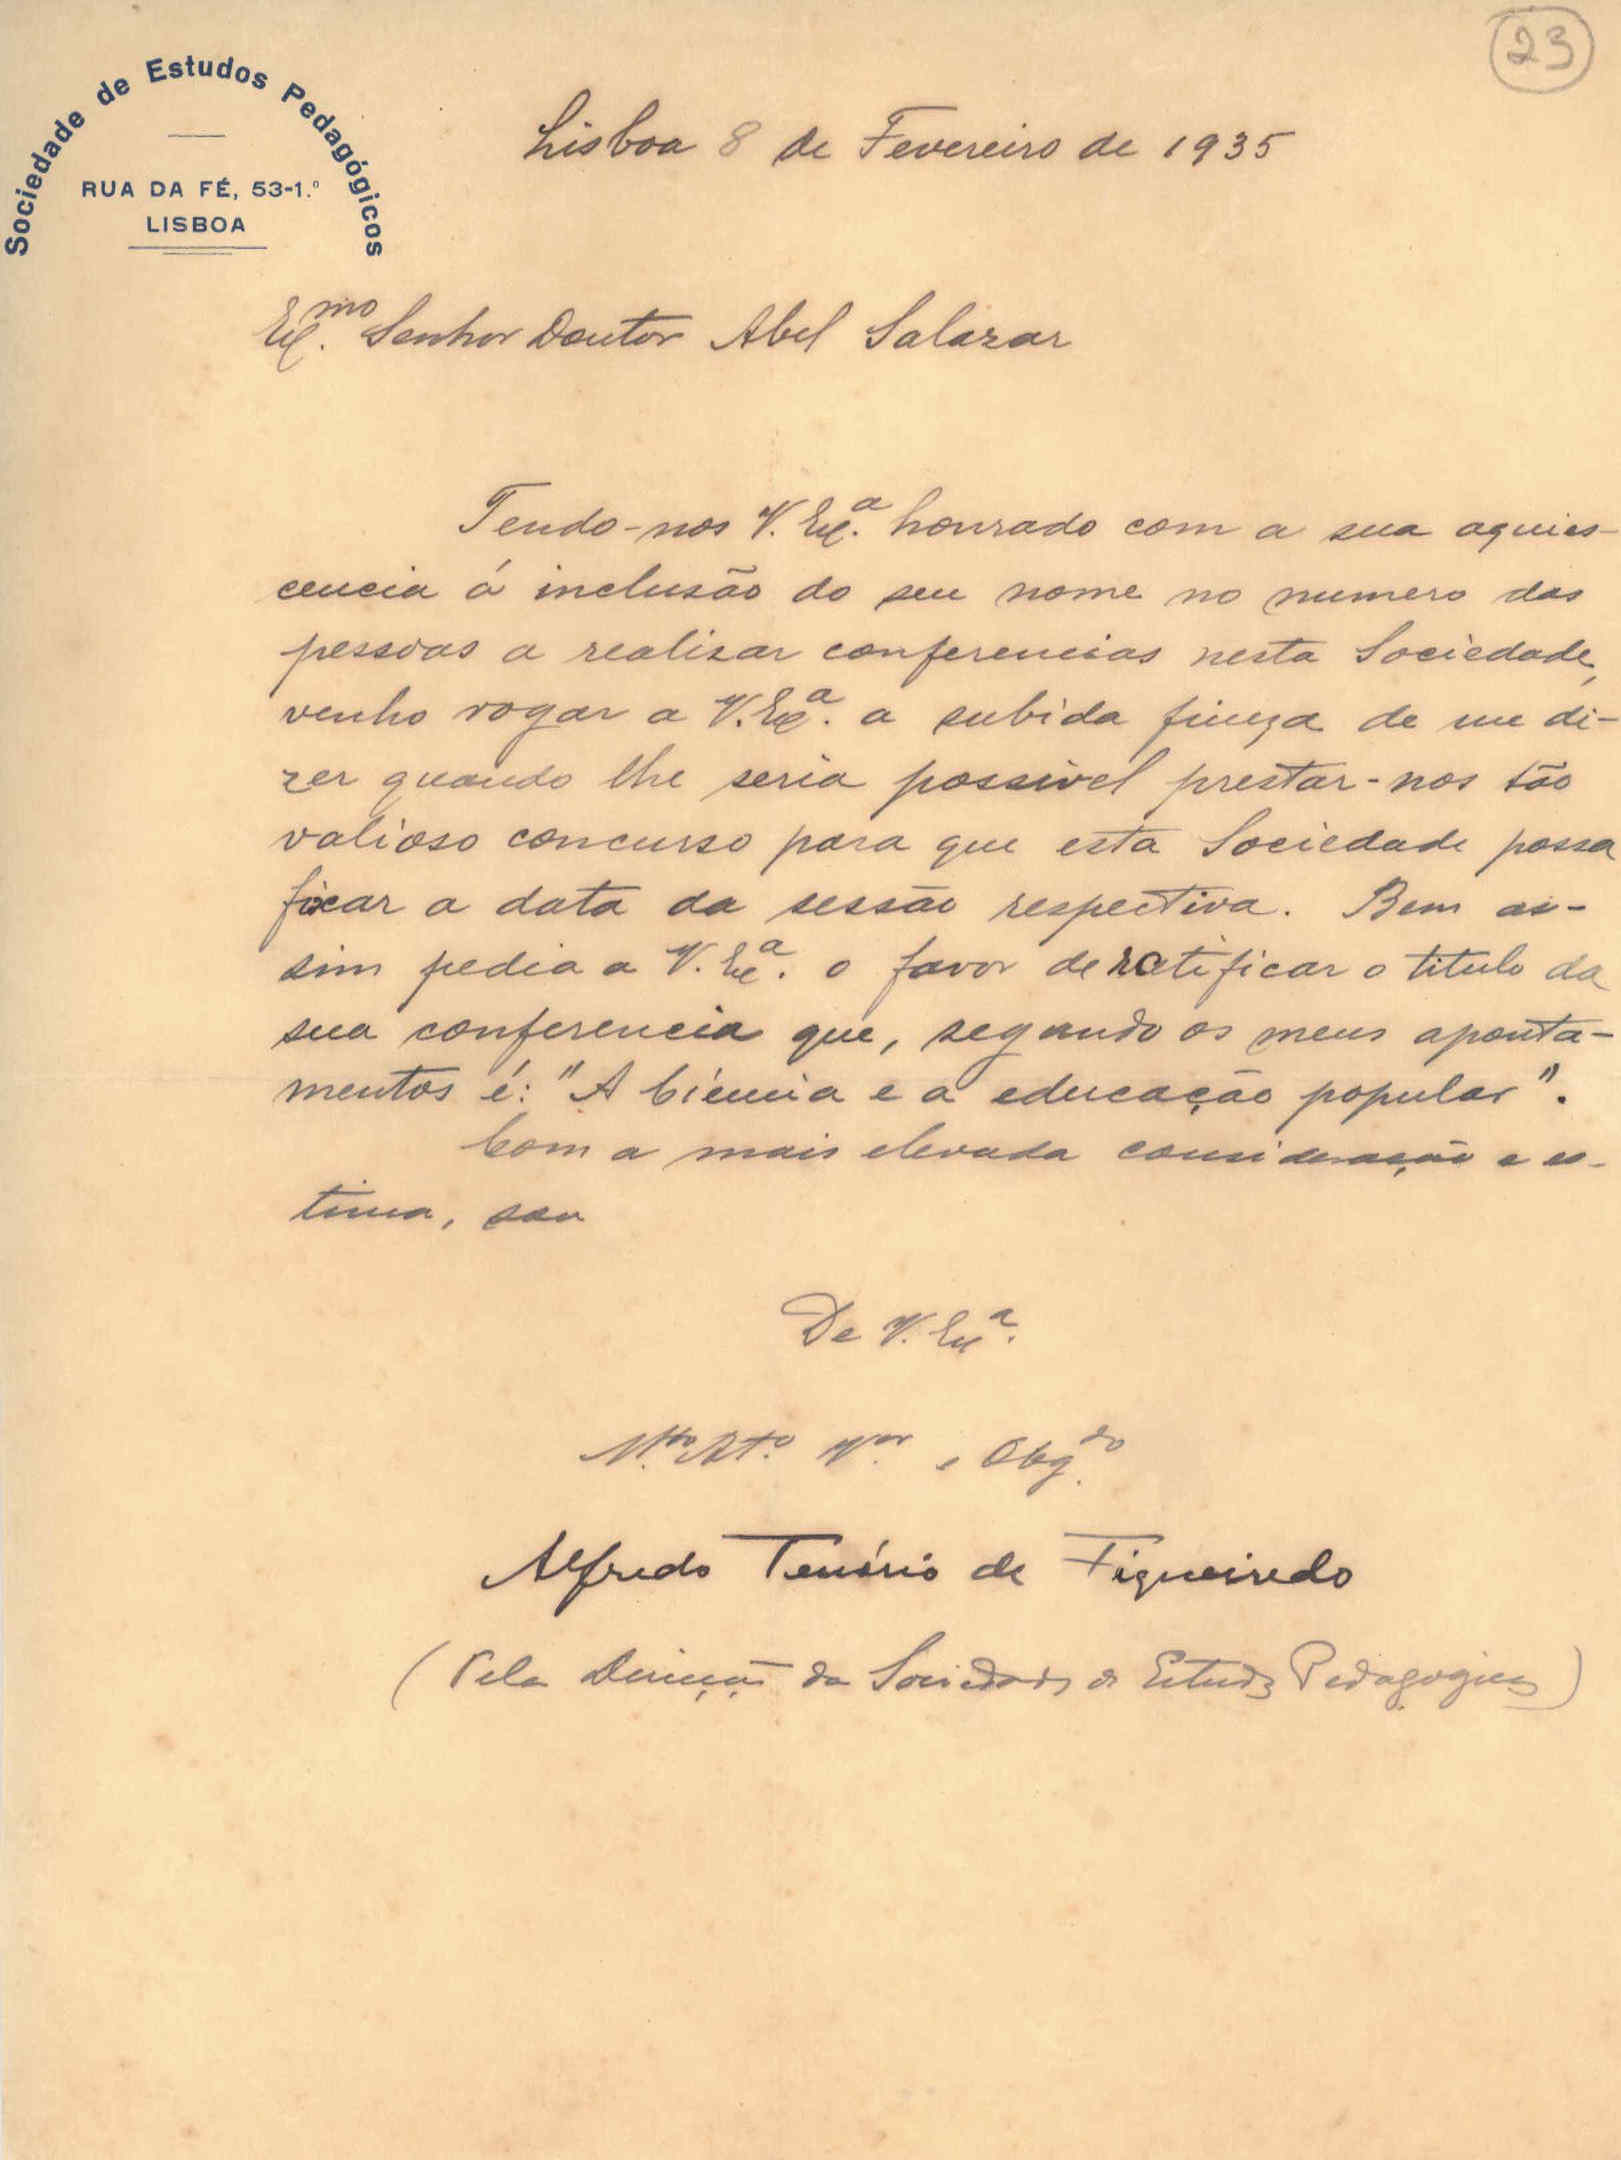 23
Sociedade de Estudos Pedagógicos
RUA DA FÉ, 53-1.º
LISBOA
Lisboa 8 de Fevereiro de 1935
Ex.mo Senhor Doutor Abel Salazar
Tendo-nos V. Ex.a honrado com a sua aquies-
cencia á inclusão do seu nome no numero das
pessoas a realisar conferencias nesta Sociedade,
venho rogar a V. Ex.a a subida fineza de me di-
zer quando lhe seria possivel prestar-nos tão
valioso concurso para que esta Sociedade possa
fixar a data da sessão respectiva. Bem as-
sim pedia a V. Ex.a o favor de ratificar o titulo da
sua conferencia que, segundo os meus aponta-
mentos é: "A Ciência e a educação popular".
Com a mais elevada consideração e es-
tima, sou
De V. Ex.a
M.to At.o V.or e Obg.do
Alfredo Tenório de Figueiredo
(Pela Direcção da Sociedade de Estudos Pedagogicos)